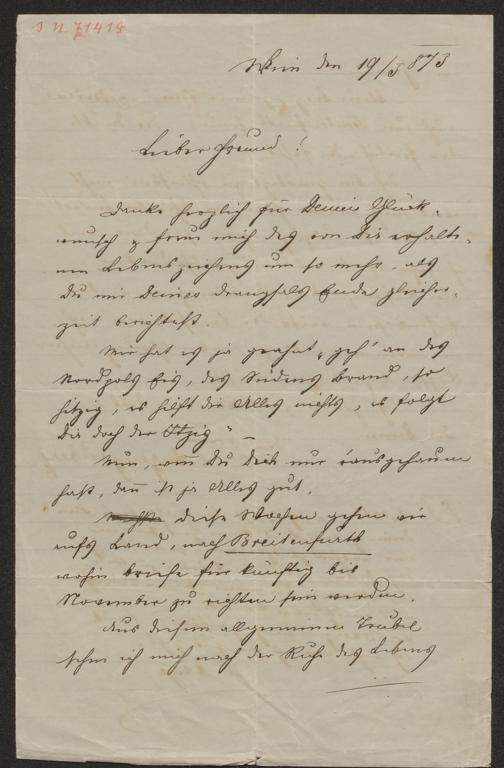 I. N. 71419
Wien den 19/5 873
Lieber Freund!
Danke herzlich für Deinen Glück-
wunsch & freue mich des von Dir erhalte-
nen Lebenszeichens um so mehr, als
Du mir Deines Drangsals Ende gleich-
zeitig berichtest.
Mir hat es ja geahnt, „geh' an des
Nordpols Eis, des Südens Brand, so
hitzig, es hilft dir Alles nichts, es folgt
Dir doch der Itzig" –
Nun, wenn Du Dich nur 'rausgehauen
hast, dann ist ja Alles gut.
Diese Wochen gehen wir
aufs Land, nach Breitenfurth
wohin Briefe für künftig bis
November zu richten sein werden.
Aus diesem allgemeinen Trubel
sehne ich mich nach der Ruhe des Lebens